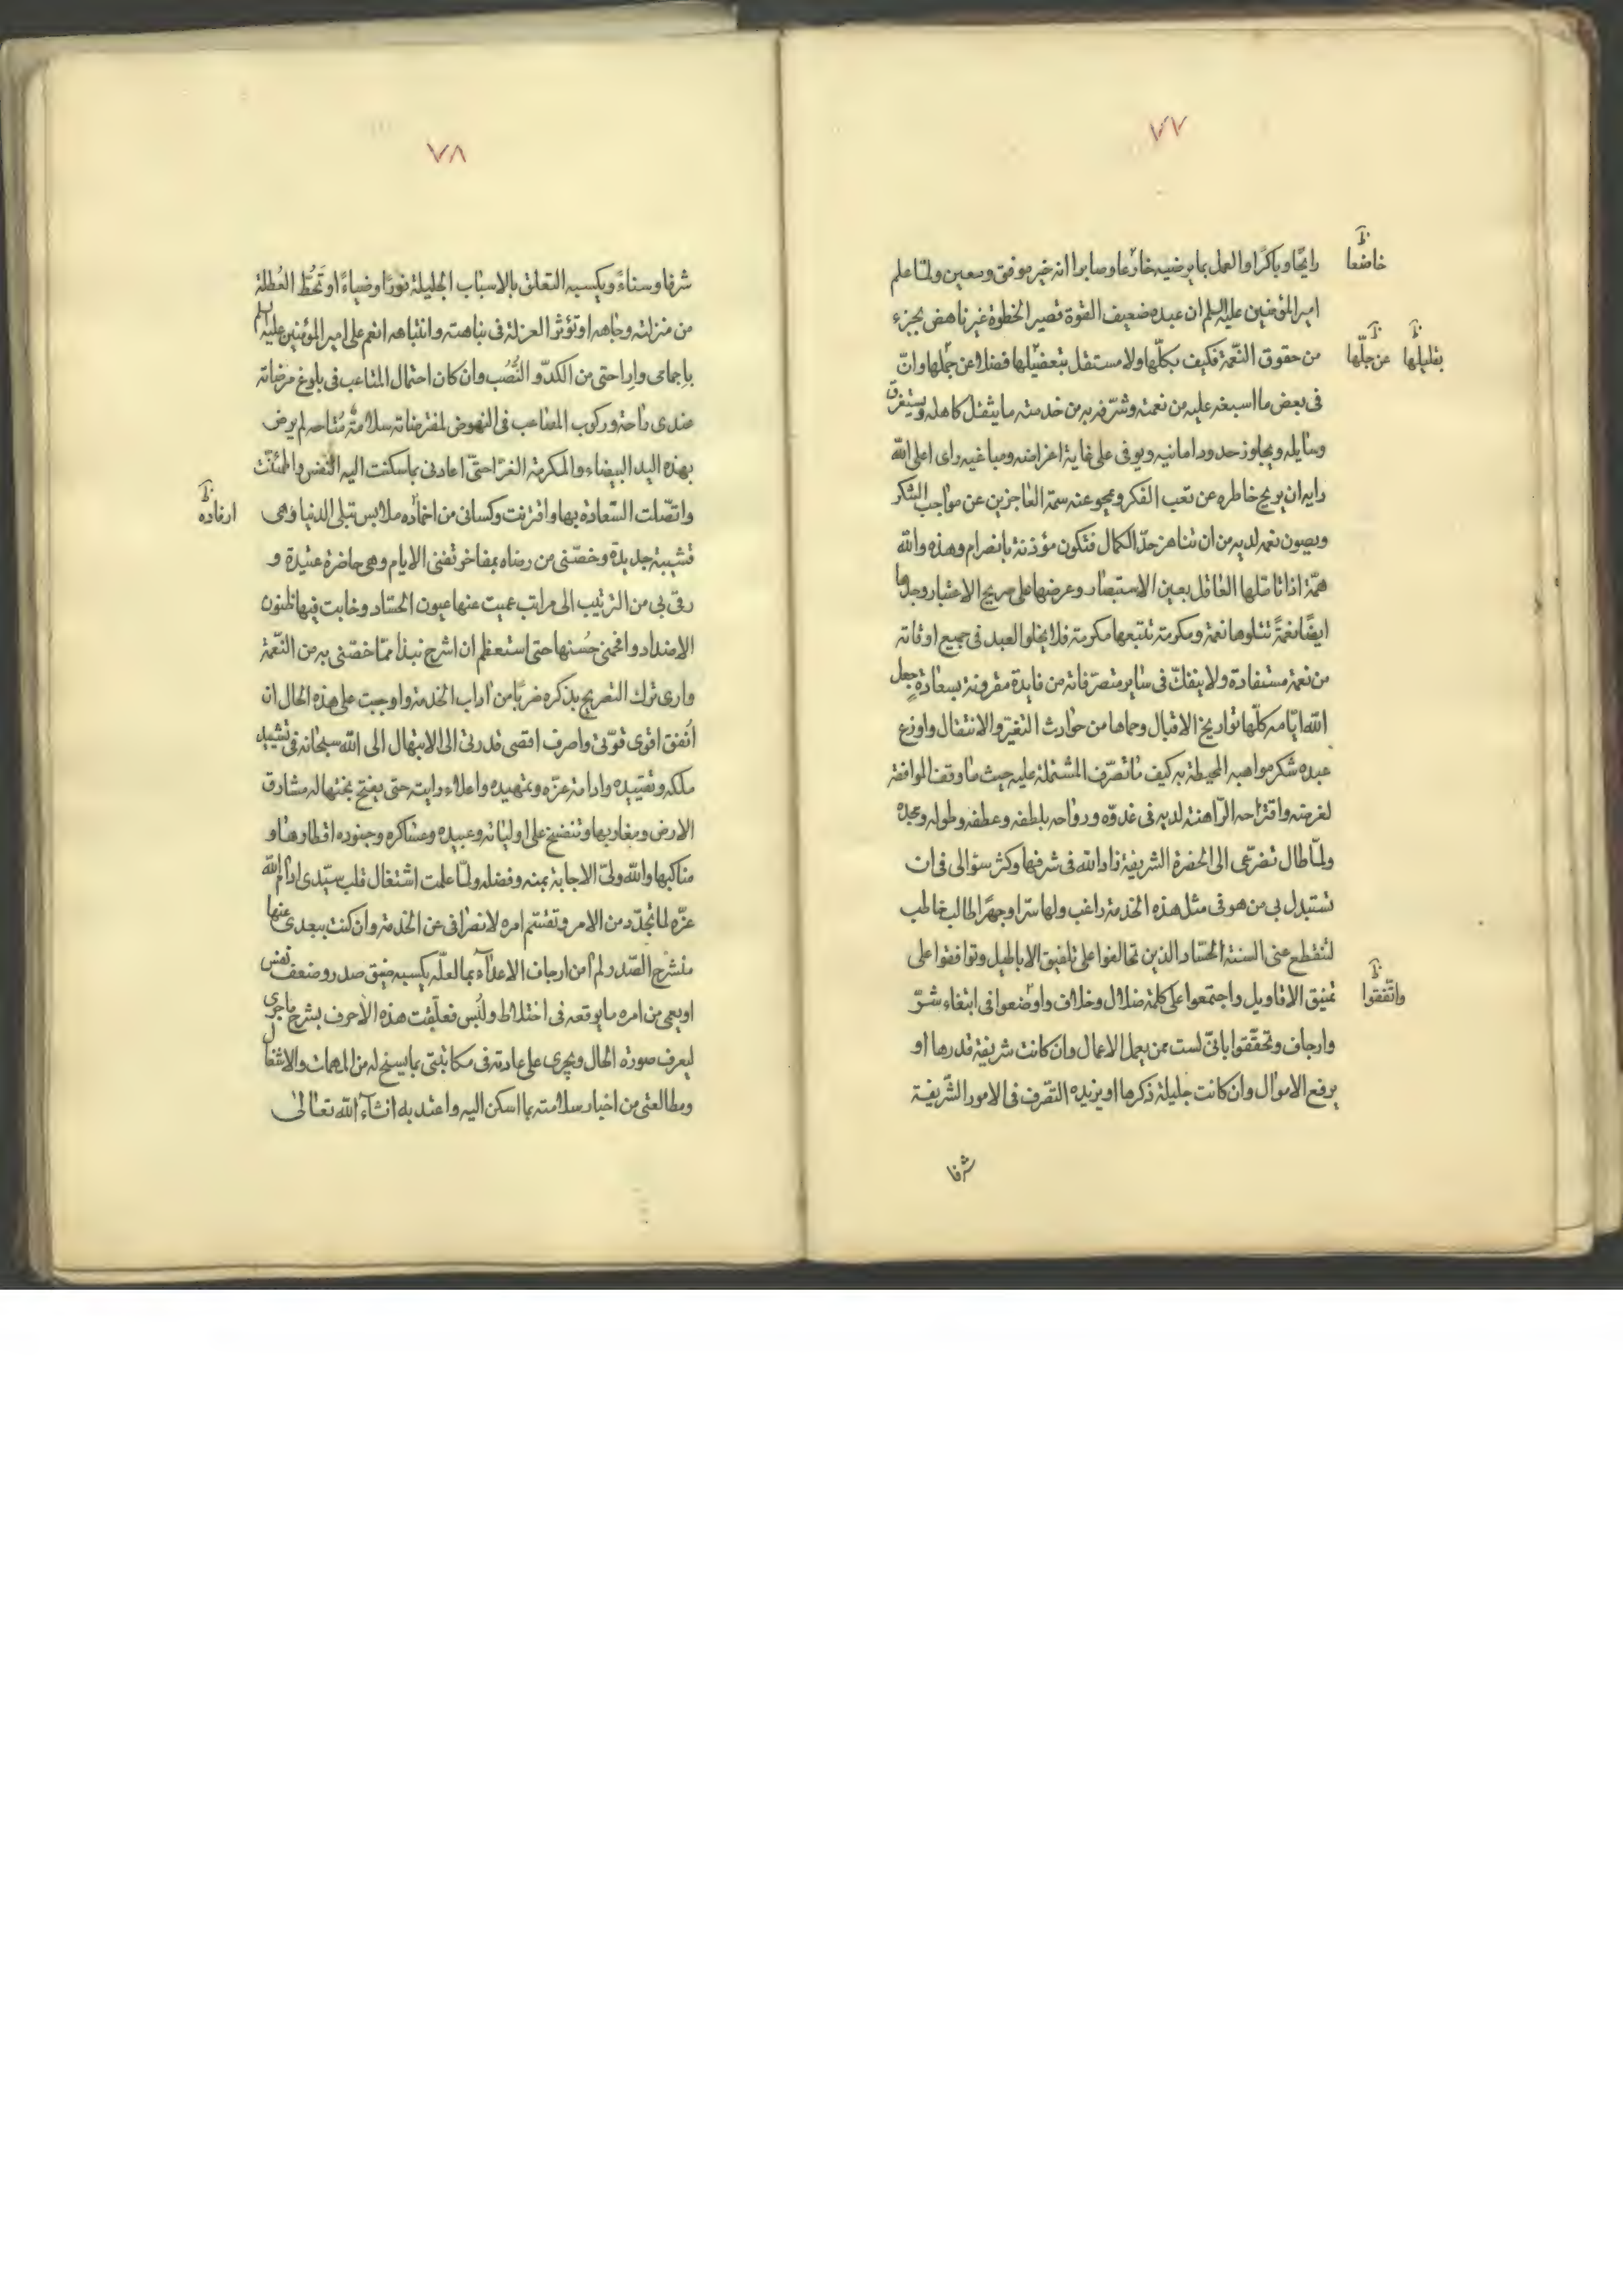 ٧٧
رايحًا وباكرًا والعمل بما يرضيه خادعا وصابرا انه خير موفق ومعين ولمّا علم
خاضعا
امير المؤمنين عليه السلم ان عبده ضعيف القوة قصير الخطوة غير ناهض بجزء
من حقوق النّعمة فكيف بكلّها ولا مستقل بتعضيلها فضلا عن جملها وانّ
بقليلها
عن جلّها
فى بعض ما اسبغه عليه من نعمته وشرّفه به من خدمته ما يثقل كاهله ويستغرق
وسايله ويجاوز حدود امانيه ويوفى على غاية اغراضه ومباغيه راى اعلى اللّه
رايه ان يريح خاطره عن تعب الفكر ويمحو عنه سمة العاجزين عن مواجب الشكر
ويصون نعمه لديه من ان تناهز حدّ الكمال فتكون مؤذنة بانصرام وهذه واللّه
همّة اذا تاملها العاقل بعين الاستبصار وعرضها على صريح الاعتبار وجدها
ايضًا نعمةً تتلوها نعمة ومكرمة تتبعها مكرمة فلا يخلو العبد فى جميع اوقاته
من نعمة مستفادة ولا ينفكّ فى ساير متصرّفاته من فايدة مقرونة بسعادةٍ جعل
اللّه ايّامه كلّها تواريخ الاقبال وحماها من حوادث التغيّر والانتقال واوزع
عبده شكر مواهبه المحيطة به كيف ما تصرّف المشتملة عليه حيث ما وقف الموافقة
لغرضه واقتراحه الرّاهنة لديه فى غدوّه ورواحه بلطفه وعطفه وطوله ومجده
ولمّا طال تضرّعى الى الحضرة الشريفة زاد اللّه فى شرفها وكثر سؤالى فى ان
تستبدل بى من هو فى مثل هذه الخدمة راغب ولها سرّا وجهرًا طالب خاطب
لتنقطع عنى السنة الحسّاد الذين تحالفوا على تلفيق الاباطيل وتوافقوا على
تمنيق الاقاويل واجتمعوا على كلمة ضلال وخلاف واوضعوا فى ابتغاء شرّ
واتّفقوا
وارجاف وتحقّقوا بانّى لست ممن يعمل الاعمال وان كانت شريفة قدرها او
يرفع الاموال وان كانت جليلة ذكرها او يزيده التصّرف فى الامور الشّريفة
شرفا
٧٨
شرفا وسناءً ويكسبه التعلق بالاسباب الجليلة نورًا وضياءً او تَحُطّ العُطلة
من منزلته وجاهه او تؤثر العزلة فى نباهته وانتباهه انعم على امير المؤمنين عليه السلم
باجمامى واراحتى من الكدّ و النَّصب وان كان احتمال المتاعب فى بلوغ مرضاته
عندى راحة وركوب المصاعب فى النهوض لمفترضاته سلامة متاحه لم يرض
بهذه اليد البيضاء والمكرمة الغرّا حتّى اعادنى بما سكنت اليه النفس واطمئنّت
واتصّلت السّعادة بها واقترنت وكسانى من اخماده ملابس تبلى الدنيا وهى
ارفاده
قشيبة جديدة وخصّنى من رضاه بمفاخر تفنى الايام وهى حاضرة عتيدة و
رقى بى من الترتيب الى مراتب عميت عنها عيون الحسّاد وخابت فيها ظنون
الاضداد وافحمنى حُسنها حتى استعظم ان اشرح نبذا ممّا خصّنى به من النّعمة
وارى ترك التصريح بذكره ضربًا من اداب الخدمة واوجبت على هذه الحال ان
اُنفق اقوى قوّتى واصرف اقصى قدرتى الى الابتهال الى اللّه سبحانه فى تشييد
ملكه وتقييده وادامة عزّه وتمهيده واعلاء رايته حتى يفتح بختها له مشارق
الارض ومغاربها وتنفسخ على اوليائه وعبيده وعساكره وجنوده اقطارها و
مناكبها واللّه ولىّ الاجابة بمنه وفضله ولمّا علمت اشتغال قلب سيّدى ادام اللّه
عزّه لما تجدّد من الامر وتقسّم امره لانصرافى عن الخدمة وان كنت ببعدى عنها
منشرح الصّدر لم آمن ارجاف الاعدآء بما لعلّه يكسبه ضيق صدر وضعف نفس
او يعى من امره ما يوقعه فى اختلاط ولُبس فعلّقت هذه الاحرف بشرح ما جرى
ليعرف صورة الحال ويجرى على عادته فى مكاتبتى بما يسنح له من المهمات والاشغال
ومطالعتى من اخبار سلامته بما اسكن اليه واعتد به انشآء اللّه تعالى